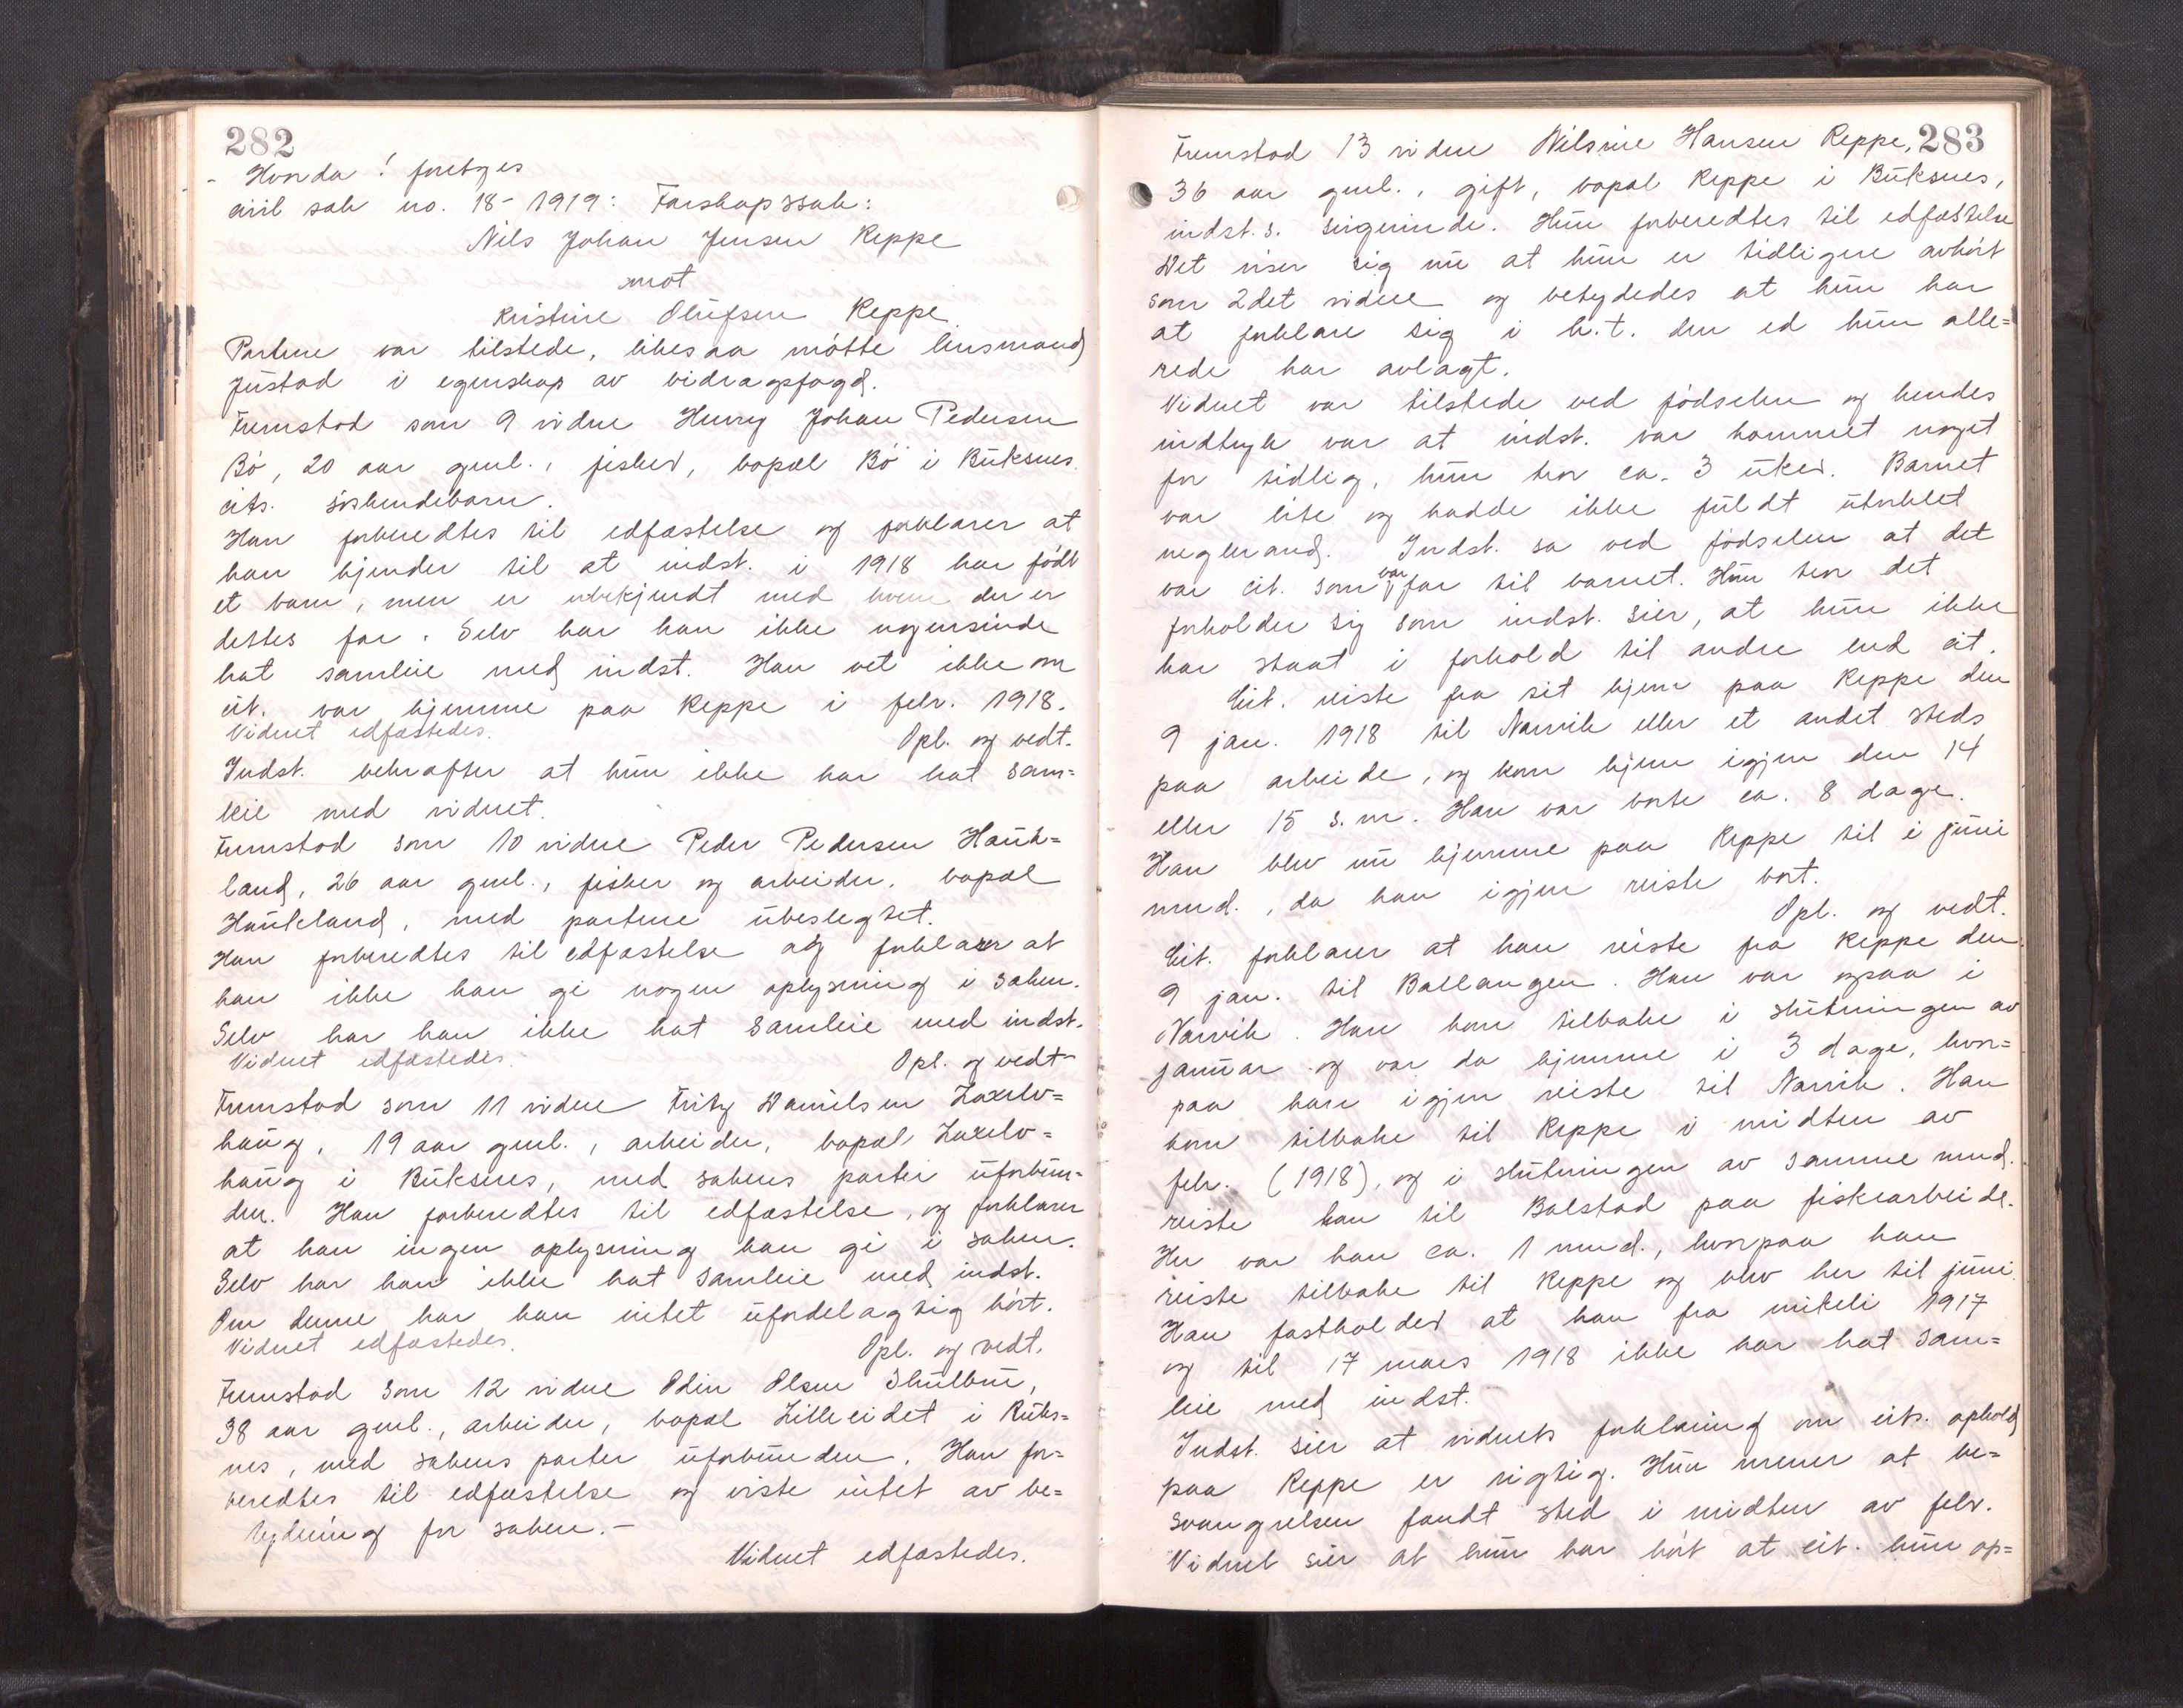 282
- Hvorda! foretoges
civil sak no. 18-1919: Farskapssak:
Nils Johan Jensen Reppe
mot
Kristine Olufsen Reppe.
Partene var tilstede, likesaa møtte lensmand
Justad i egenskap av bidragsfogd.
Fremstod som 9 vidne Henry Johan Pedersen
Bø, 20 aar gml., fisker, bopæl Bø i Buksnes.
cits. søskendebarn.
Han forberedtes til edfæstelse og forklarer at
han kjender til at indst. i 1918 har født
et barn, men er ubekjendt med hvem der er
dettes far. Selv har han ikke nogensinde
hat samleie med indst. Han vet ikke om
cit. var hjemme paa Reppe i febr. 1918.
Vidnet edfæstedes. Opl. og vedt.
Indst. bekræfter at hun ikke har hat sam=
leie med vidnet.
Fremstod som 10 vidne Peder Pedersen Hauk=
land, 26 aar gml., fisker og arbeider, bopæl
Haukland, med partene ubeslegtet.
Han forberedtes til edfæstelse og forklarer at
han ikke kan gi nogen oplysning i saken.
Selv har han ikke hat samleie med indst.
Vidnet edfæstedes. Opl. og vedt.
Fremstod som 11 vidne Fritz Danielsen Laxelv=
haug, 19 aar gml., arbeider, bopæl Laxelv=
haug i Buksnes, med sakens parter uforbun=
den. Han forberedtes til edfæstelse, og forklarer
at han ingen oplysning kan gi i saken.
Selv har han ikke hat samleie med indst.
Om denne har han intet ufordelagtig hørt.
Vidnet edfæstedes. Opl. og vedt.
Fremstod som 12 vidne Odin Olsen Skulbru,
38 aar gml., arbeider, bopæl Lilleeidet i Buks=
nes, med sakens parter uforbunden. Han for=
beredtes til edfæstelse og viste intet av be=
tydning for saken.-
Vidnet edfæstedes.
283
Fremstod 13 vidne Nilsine Hansen Reppe,
36 aar gml., gift, bopæl Reppe i Buksnes,
indst.s. svigerinde. Hun forberedtes til edfæstelse
Det viser sig nu at hun er tidligere avhørt
som 2det vidne og betydedes at hun har
at forklare sig i h.t. den ed hun alle=
rede har avlagt.
Vidnet var tilstede ved fødselen og hendes
indtryk var at indst. var kommet noget
for tidlig, hun tror ca. 3 uker. Barnet
var lite og hadde ikke fuldt utviklet
neglerand. Indst. sa ved fødselen at det
var cit. som var far til barnet. Hun tror det
forholder sig som indst. sier, at hun ikke
har staat i forhold til andre end cit.
Cit. reiste fra sit hjem paa Reppe den
9 jan. 1918 til Narvik eller et andet steds
paa arbeide, og kom hjem igjen den 14
eller 15 s.m. Han var borte ca. 8 dage.
Han blev nu hjemme paa Reppe til i juni
mnd., da han igjen reiste bort.
Opl. og vedt.
Cit. forklarer at han reiste fra Reppe den
9 jan. til Ballangen. Han var ogsaa i
Narvik. Han kom tilbake i slutningen av
januar og var da hjemme i 3 dage, hvor=
paa han igjen reiste til Narvik. Han
kom tilbake til Reppe i midten av
febr. (1918), og i slutningen av samme mnd.
reiste han til Balstad paa fiskearbeide.
Her var han ca. 1 mnd., hvorpaa han
reiste tilbake til Reppe og blev her til juni.
Han fastholder at han fra mikeli 1917
og til 17 mars 1918 ikke har hat sam=
leie med indst.
Indst. sier at vidnets forklaring om cits. ophold
paa Reppe er rigtig. Hun mener at be=
svangrelsen fandt sted i midten av febr.
Vidnet sier at hun har hørt at cit. hun op=